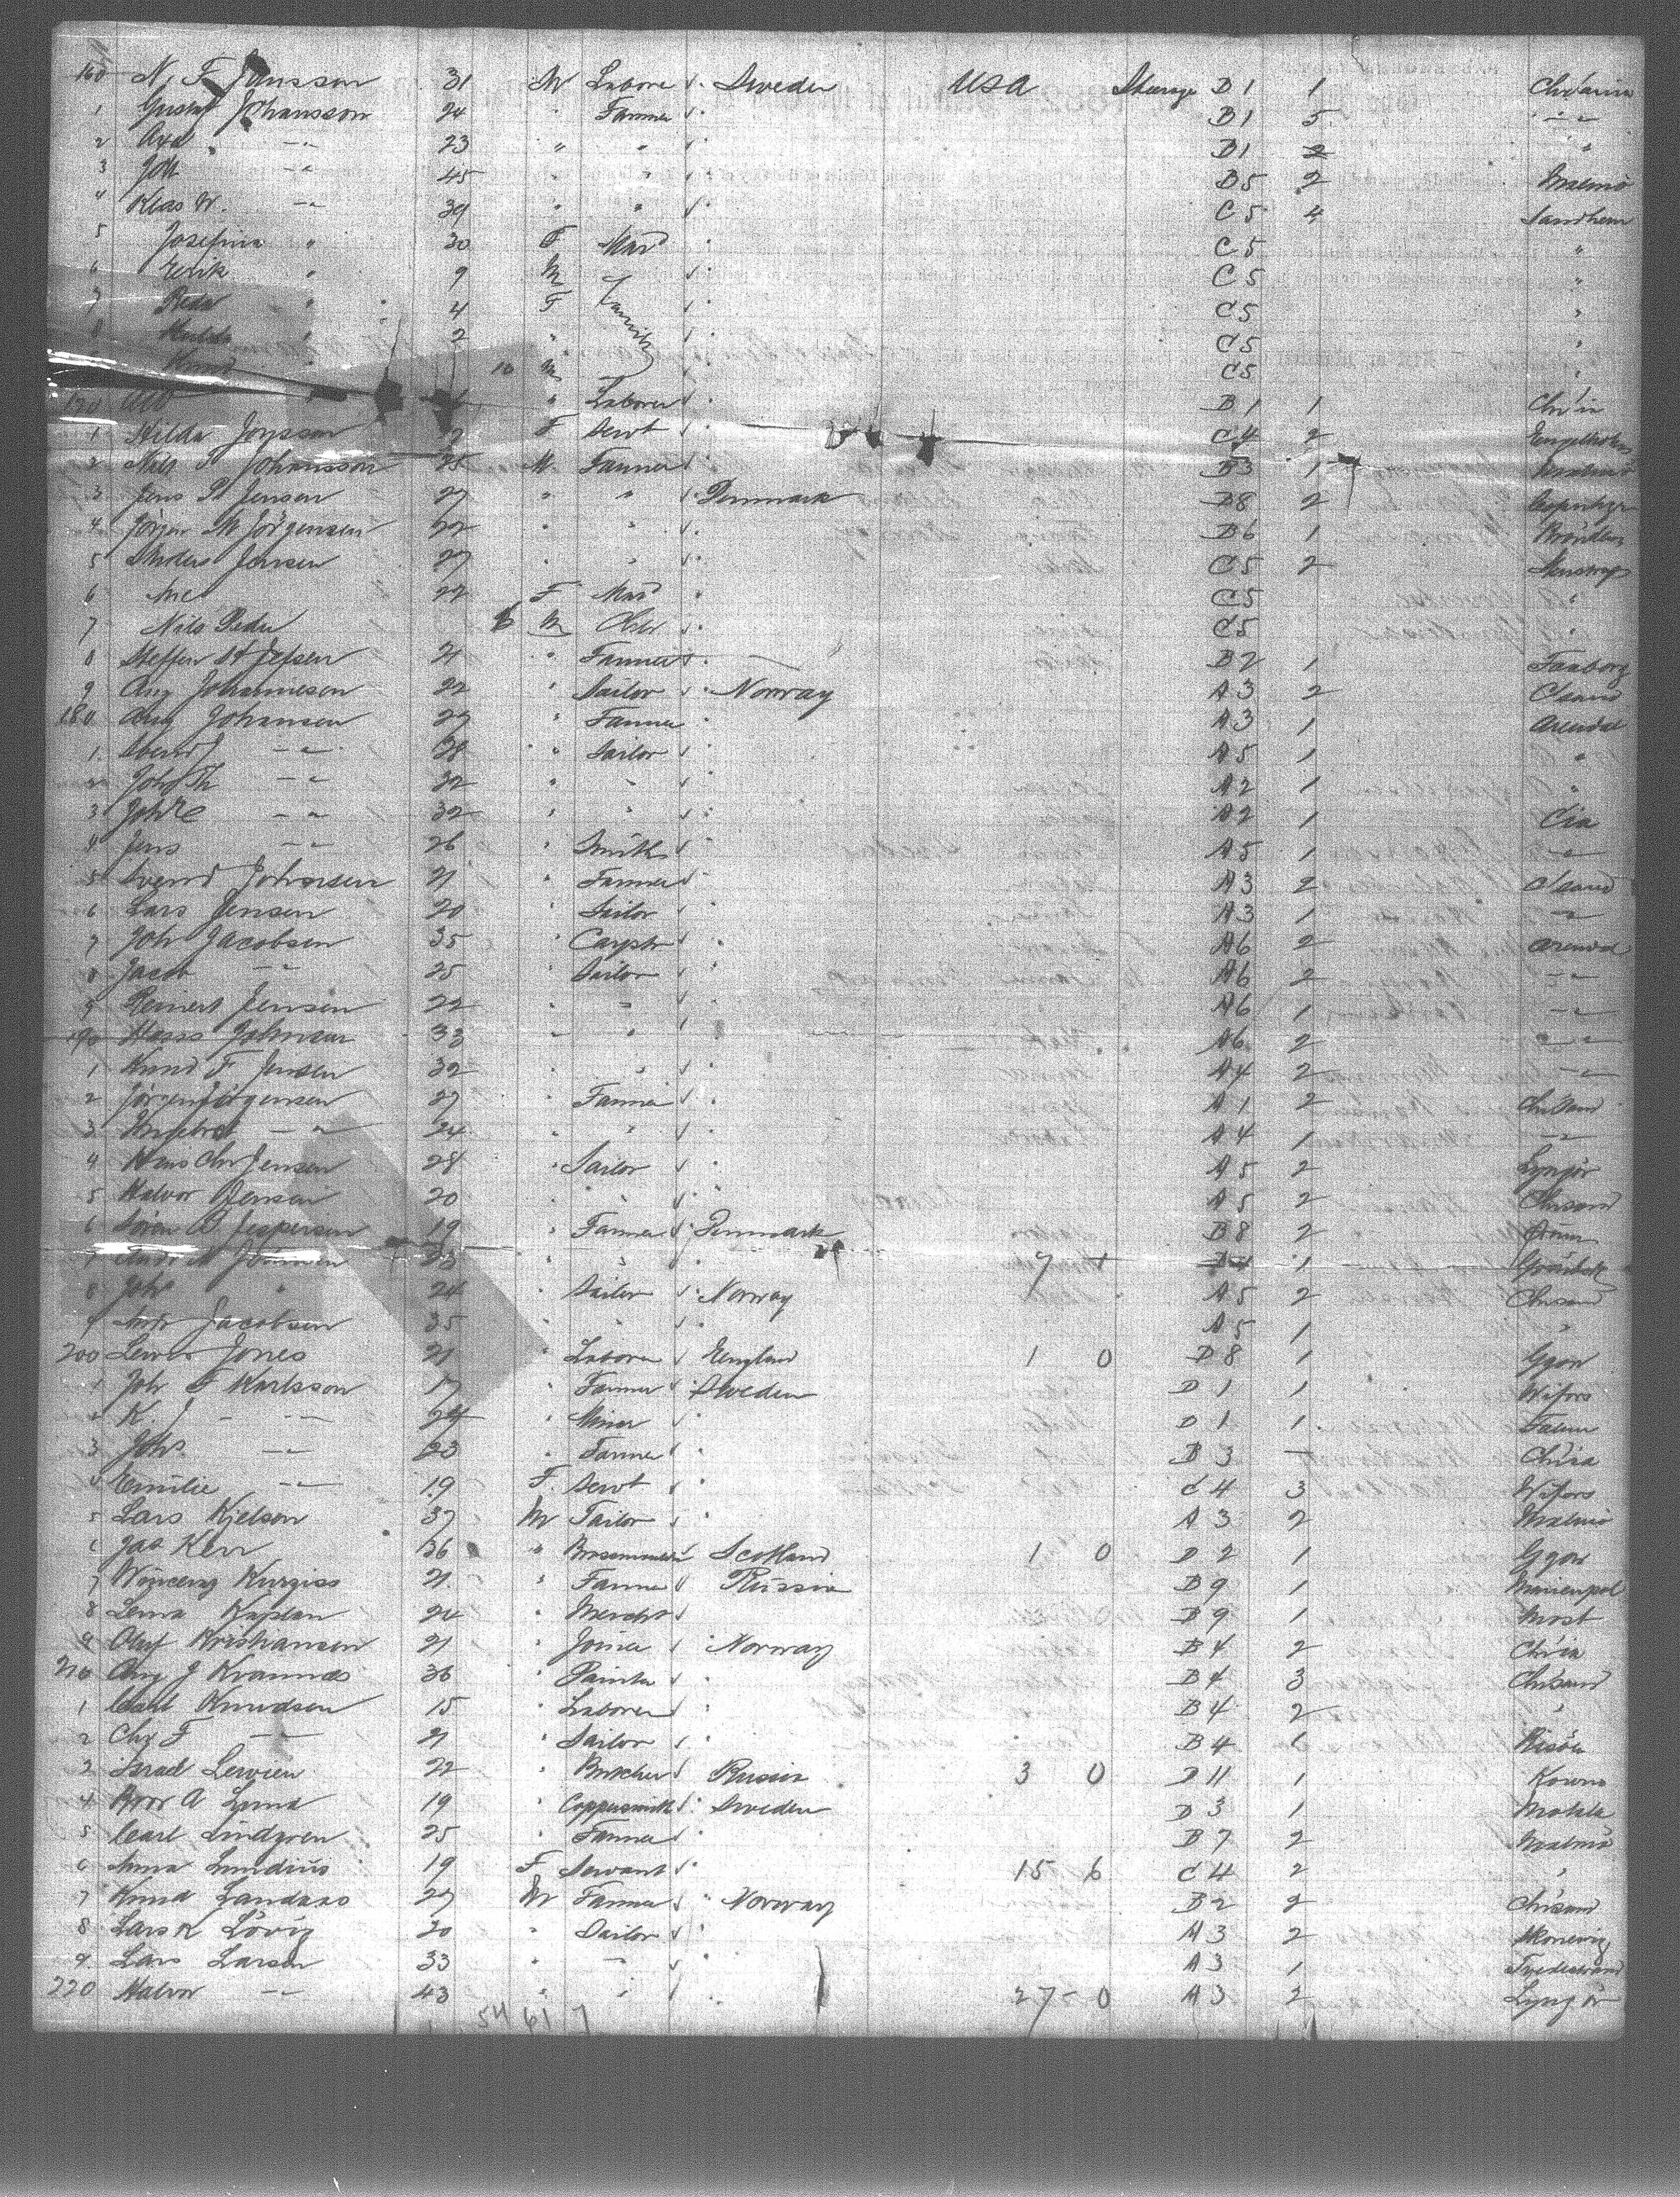 160 N. F. Jansson 31 M Labore Sweden USA Steerage B 1 1 Chr'ania
1 Gustaf Johansson 24 " Farmer B 1 5 " — "
2 Axel " — " 23 " " B 1 2 "
3 Joh — " 45 " " B 5 2 Malmö
4 Klas W. — " 39 " " C 5 4 Sandhem
5 Josefina " 30 F Mard C 5 "
6 Erik " 9 M Family C 5 "
7 " 4 F C 5 "
8 Hulda " 2 " C 5 "
10 M C 5 "
" Laborer B 1 1 Chr'ia
1 Hilda Jonsson F Servt C 4 2 Engelholm
2 Nils P Johansson 25 M. Farmer B 3 1 Malmö
3 Jens P. Jensen 27 " " Denmark B 8 2 Copenhgn
4 Jörgen M Jörgensen 22 " " B 6 1
5 Anders Jensen 27 " " C 5 2
6 Ane 22 F Mard C 5 "
7 Nils Peder 6 M C 5 "
8 Steffen St Jepsen 21 " Farmer B 2 1 Faaborg
9 Aug Johannesen 22 " Sailor Norway A 3 2 C'sand
180 Aug Johansen 29 " Farmer A 3 1 Arendal
1 — " 28 " Sailor A 5 1 "
2 Joh Th — " 32 " " A 2 1 "
3 — " 32 " " A 2 1 C'ia
4 Jens — " 26 " Smith A 5 1 — "
5 Svend Johansen 21 " Farmer A 3 2 C'sand
6 Lars Jensen 20 " Sailor A 3 1 — "
7 Joh Jacobsen 35 " Carptr A 6 2 Arendal
8 Jacob — " 25 " Sailor A 6 2 — "
9 Reinert Jensen 22 " " A 6 1 — "
190 Johnsen 33 " " A 6 2 — "
1 Knud F Jensen 32 " " A 4 2 — "
2 Jörgen Jörgensen 27 " Farmer A 1 2 Chr'sand
3 Ingebret — " 24 " " A 4 1 — "
4 Hans Chr Jensen 28 " Sailor A 5 2 Lyngör
5 Halvor Jensen 20 " " A 5 2 Chr'sand
6 Sören B Jespersen 19 " Farmer Denmark B 8 2
7 23 " " 7 1
8 Joh " 24 " Sailor Norway A 5 2 Chr'sand
9 Andr Jacobsen 35 " " A 5 1 "
200 Lewis Jones 21 " Laborer England 1 0 D 8 1 Ggow
1 Joh F Karlsson 17 " Farmer Sweden D 1 1 Wifors
2 K. J — " 24 " Miner D 1 1 Falun
3 Johs — " 23 " Farmer B 3 — Chr'ia
4 Emilie — " 19 F. Servt C 4 3 Wifors
5 Lars Kjelson 37 M Tailor A 3 2 Malmö
6 Jas Kerr 36 " Scotland 1 0 D 2 1 Ggow
7 Kurgiss 21 " Farmer Russia B 9 1 Marienpol
8 Kaplan 24 " Mercht B 9 1 Most
9 Oluf Kristiansen 21 " Joiner Norway B 4 2 Chr'ia
210 Aug J 36 " Painter B 4 3 Chr'sand
1 Carl Knudsen 15 " Laborer B 4 2 "
2 Chr F — " 21 " Sailor B 4 1 Risör
3 Israel Lewien 22 " Butcher Russia 3 0 D 11 1 Kowno
4 Bror A Lund 19 " Coppersmith Sweden D 3 1 Motala
5 Carl Lindgren 25 " Farmer B 7 2 Malmö
6 Anna Lundius 19 F Servant 15 6 C 4 2 "
7 Knud Landaas 27 M Farmer Norway B 2 2 Chr'sand
8 Lars K Lövig 20 " Sailor A 3 2 Skonevig
9 Lars Larsen 33 " — A 3 1 Tvedestrand
220 Halvor — " 43 " " 27 - 0 A 3 2 Lyngör
54 61 7